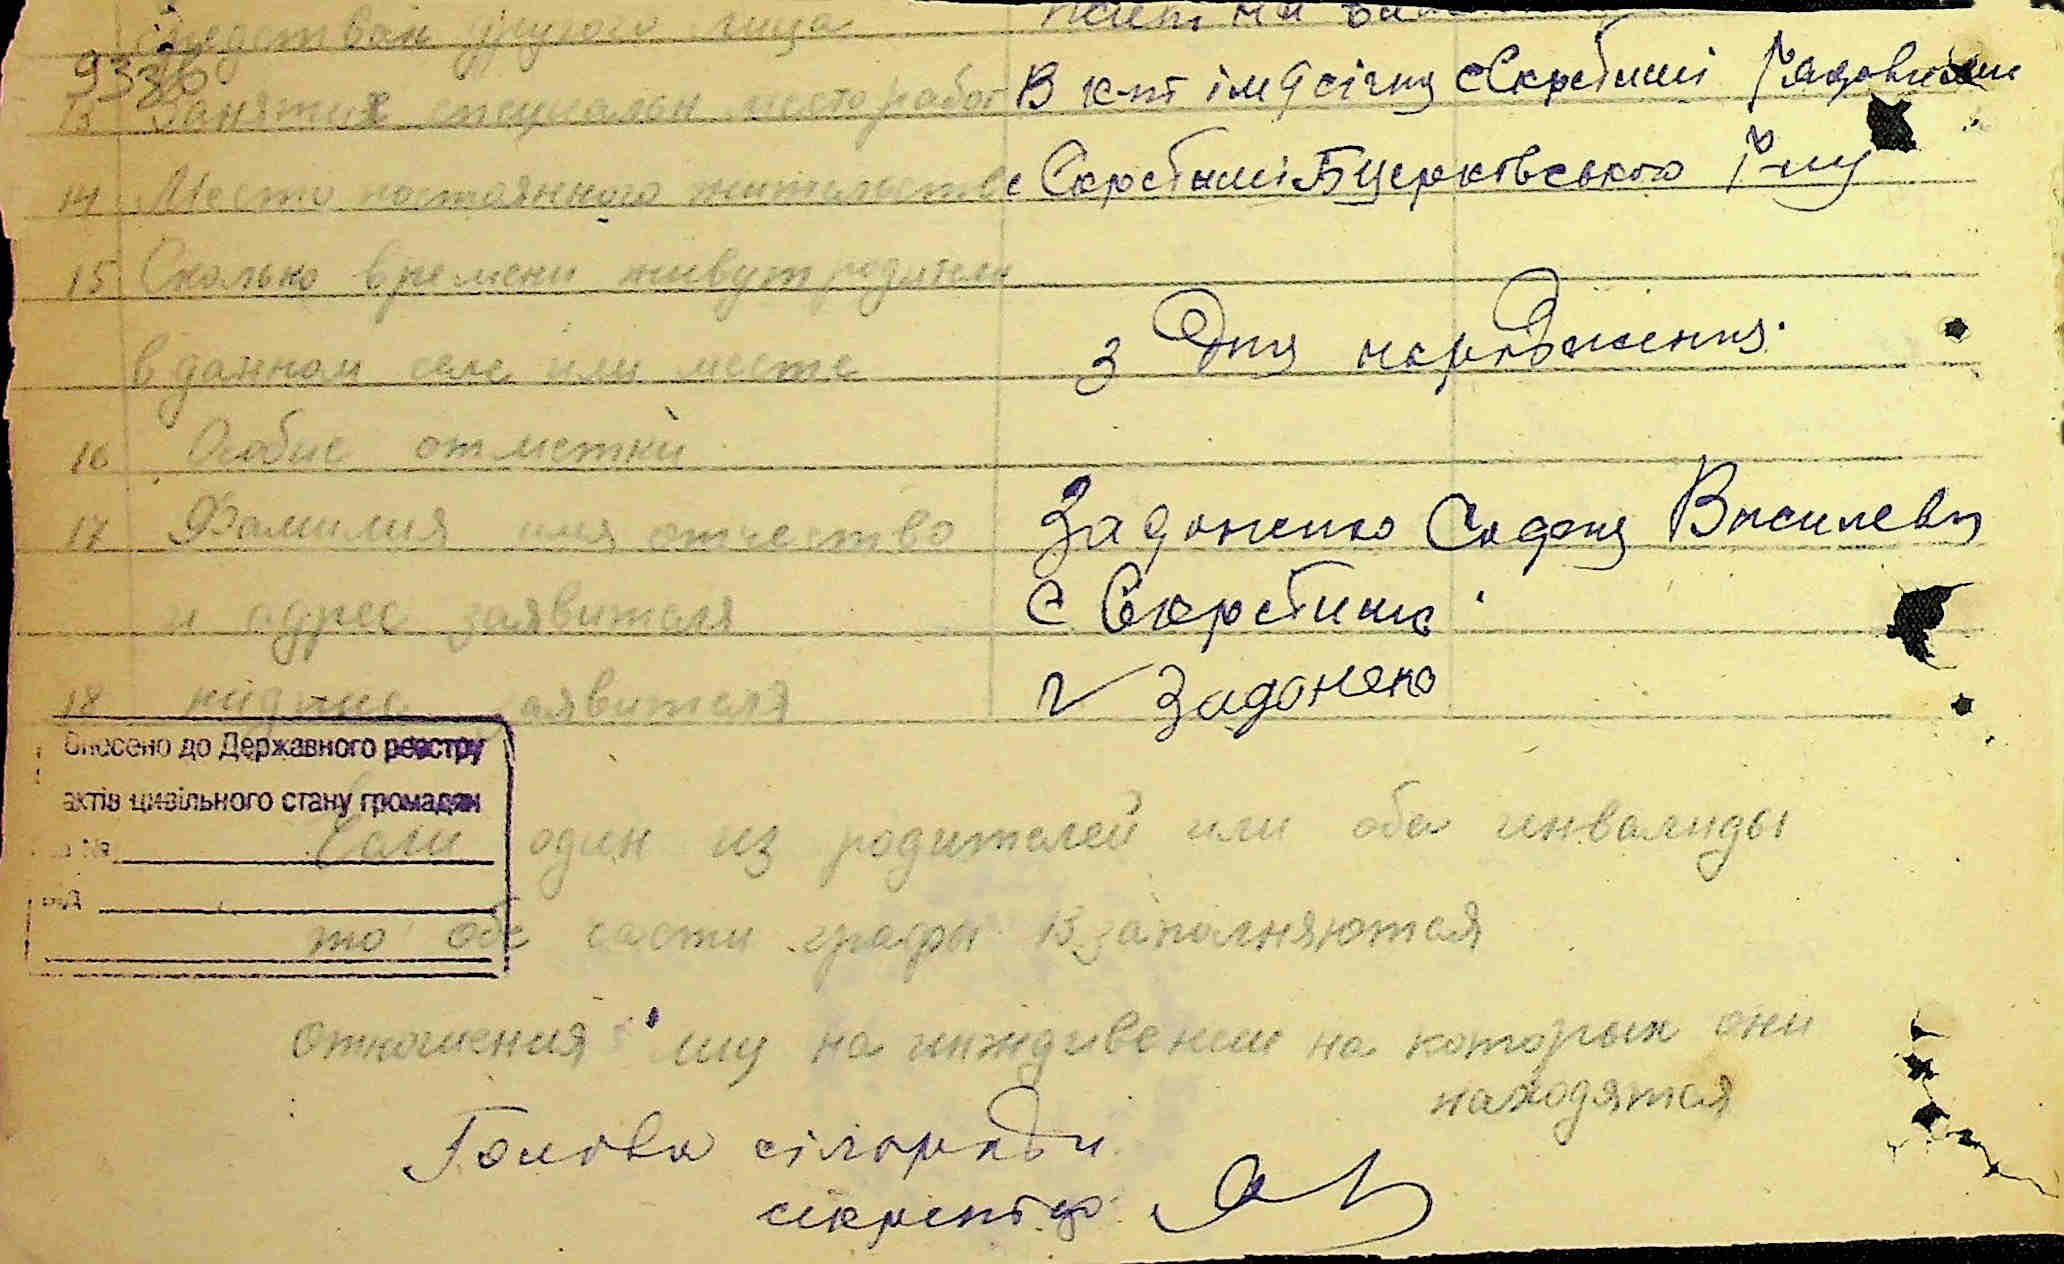 средствах другого лица
9336
13 Занятия специальн место работ В к-пі ім 9 січня с Скребиші Рядовими
14 Место постоянного жительств с Скребиші Бцерковського р-ну
15 Сколько времени живут родители
в данном селе или месте з дня народження.
16 Особые отметки
17 Фамилия имя отчество Задоненко Софія Василевн
и адрес заявителя с Скребиші
18 подпись заявителя Задоненко
Внесено до Державного реєстру
актів цивільного стану громадян
за №
Если один из родителей или оба инвалиды
то обе части графы 13 заполняются
отношения к лицу на иждивении на которых они
находятся
Голова сільради
секретар